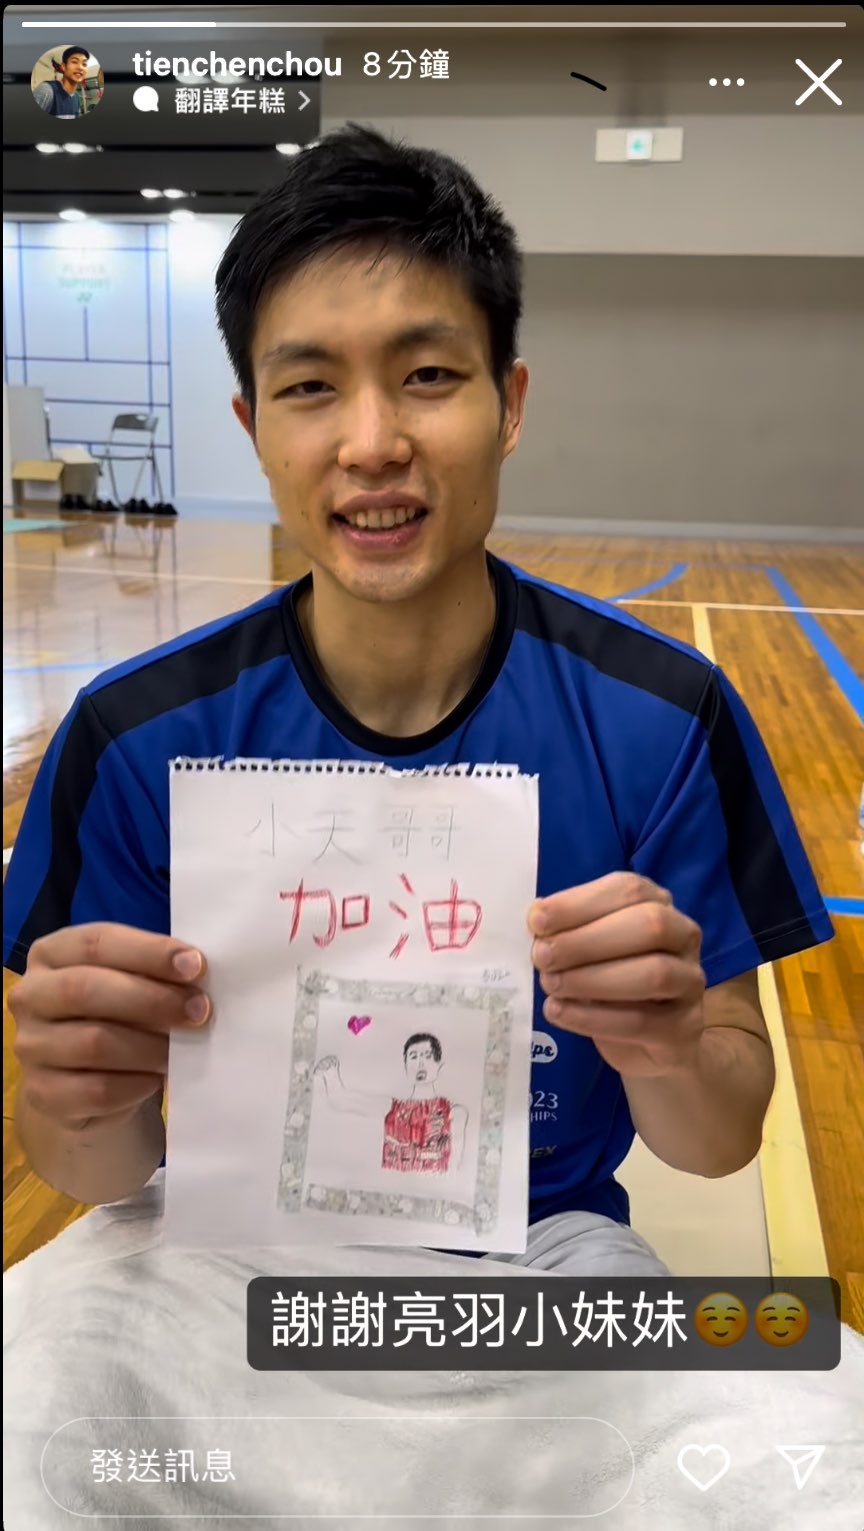 tienchenchou 8分鐘
翻譯年糕
PLAYER
SUPPORT
小天哥哥
加油
謝謝亮羽小妹妹☺️☺️
發送訊息